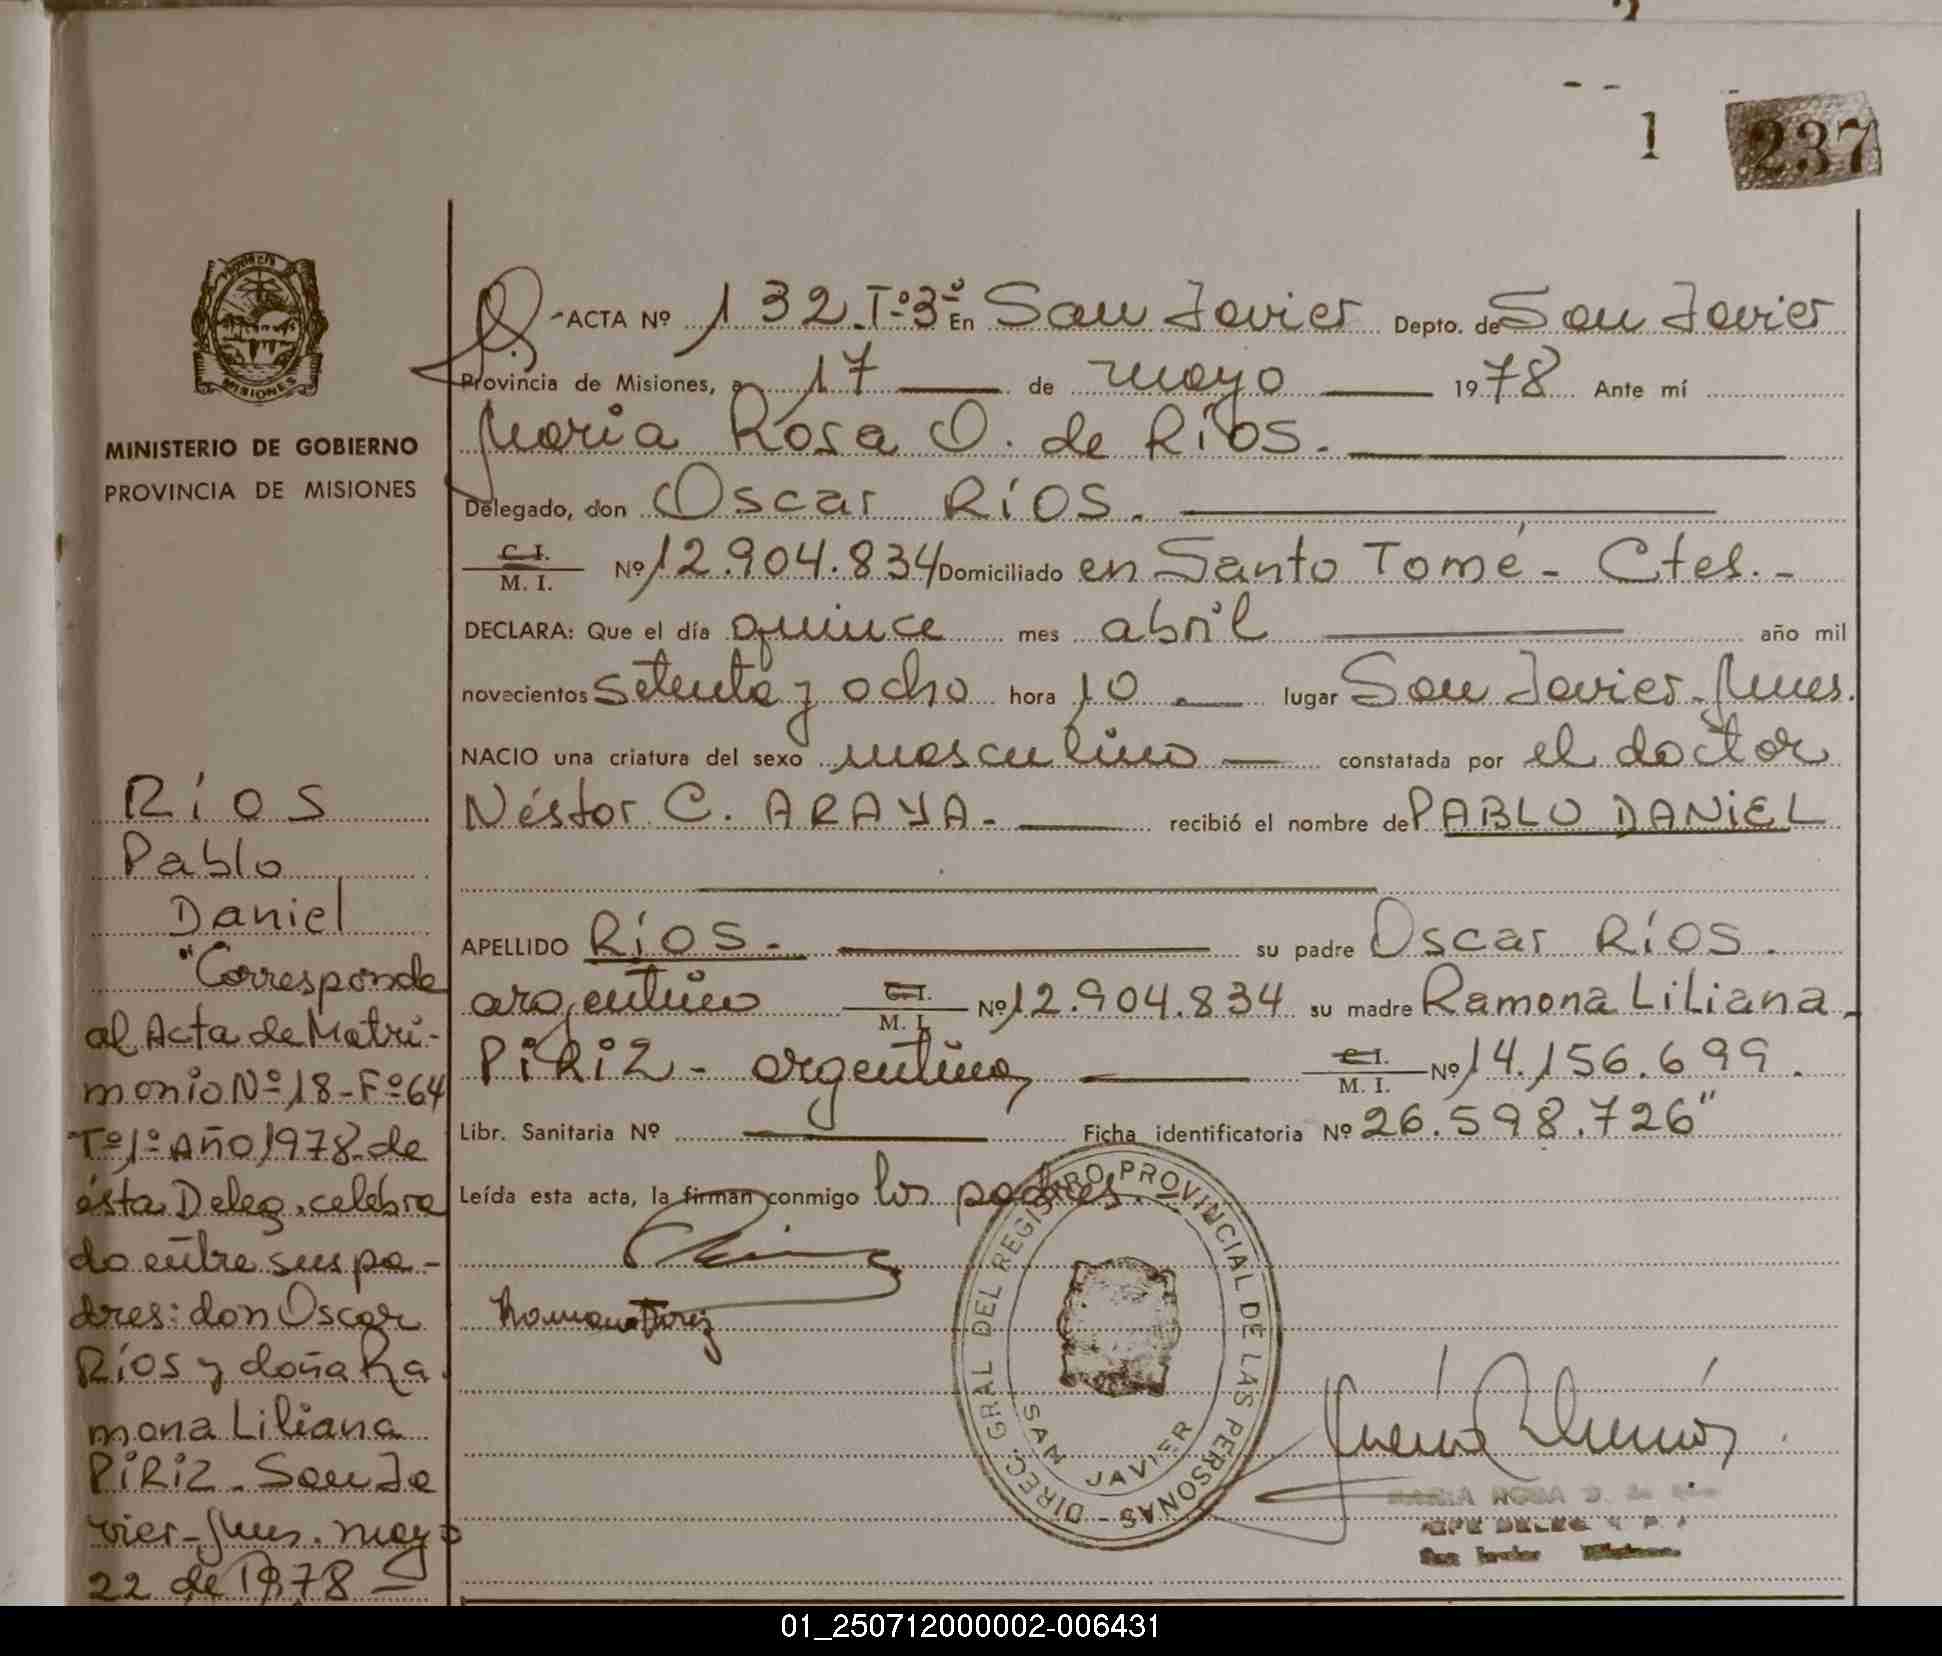 1 237
MISIONES
MINISTERIO DE GOBIERNO
PROVINCIA DE MISIONES
ACTA Nº 132.Tº3º En San Javier Depto. de San Javier
Provincia de Misiones, a 17 de mayo 1978 Ante mí
María Rosa O. de Ríos.
Delegado, don Oscar Ríos.
C. I.
M. I. Nº 12.904.834 Domiciliado en Santo Tomé - Ctes. -
DECLARA: Que el día quince mes abril año mil
novecientos setenta y ocho hora 10 lugar San Javier - Mnes.
NACIO una criatura del sexo masculino constatada por el doctor
Néstor C. ARAYA - recibió el nombre de PABLO DANIEL
APELLIDO Ríos - su padre Oscar Ríos.
argentino C. I.
M. I. Nº 12.904.834 su madre Ramona Liliana
PiRiZ - argentina C. I.
M. I. Nº 14.156.699.
Libr. Sanitaria Nº Ficha identificatoria Nº 26.598.726"
Leída esta acta, la firman conmigo los padres.
Ramona Piriz
DIREC. GRAL DEL REGISTRO PROVINCIAL DE LAS PERSONAS -
SAN JAVIER
MARIA ROSA O. de
JEFE DELEG
San Javier Misiones.
Ríos
Pablo
Daniel
"Corresponde
al Acta de Matri-
monio Nº 18 - Fº 64
Tº 1º Año 1978 de
ésta Deleg. celebra
do entre sus pa-
dres: don Oscar
Ríos y doña Ra
mona Liliana
PiRiZ. San Ja
vier - Mnes. mayo
22 de 1978 -
01_250712000002-006431